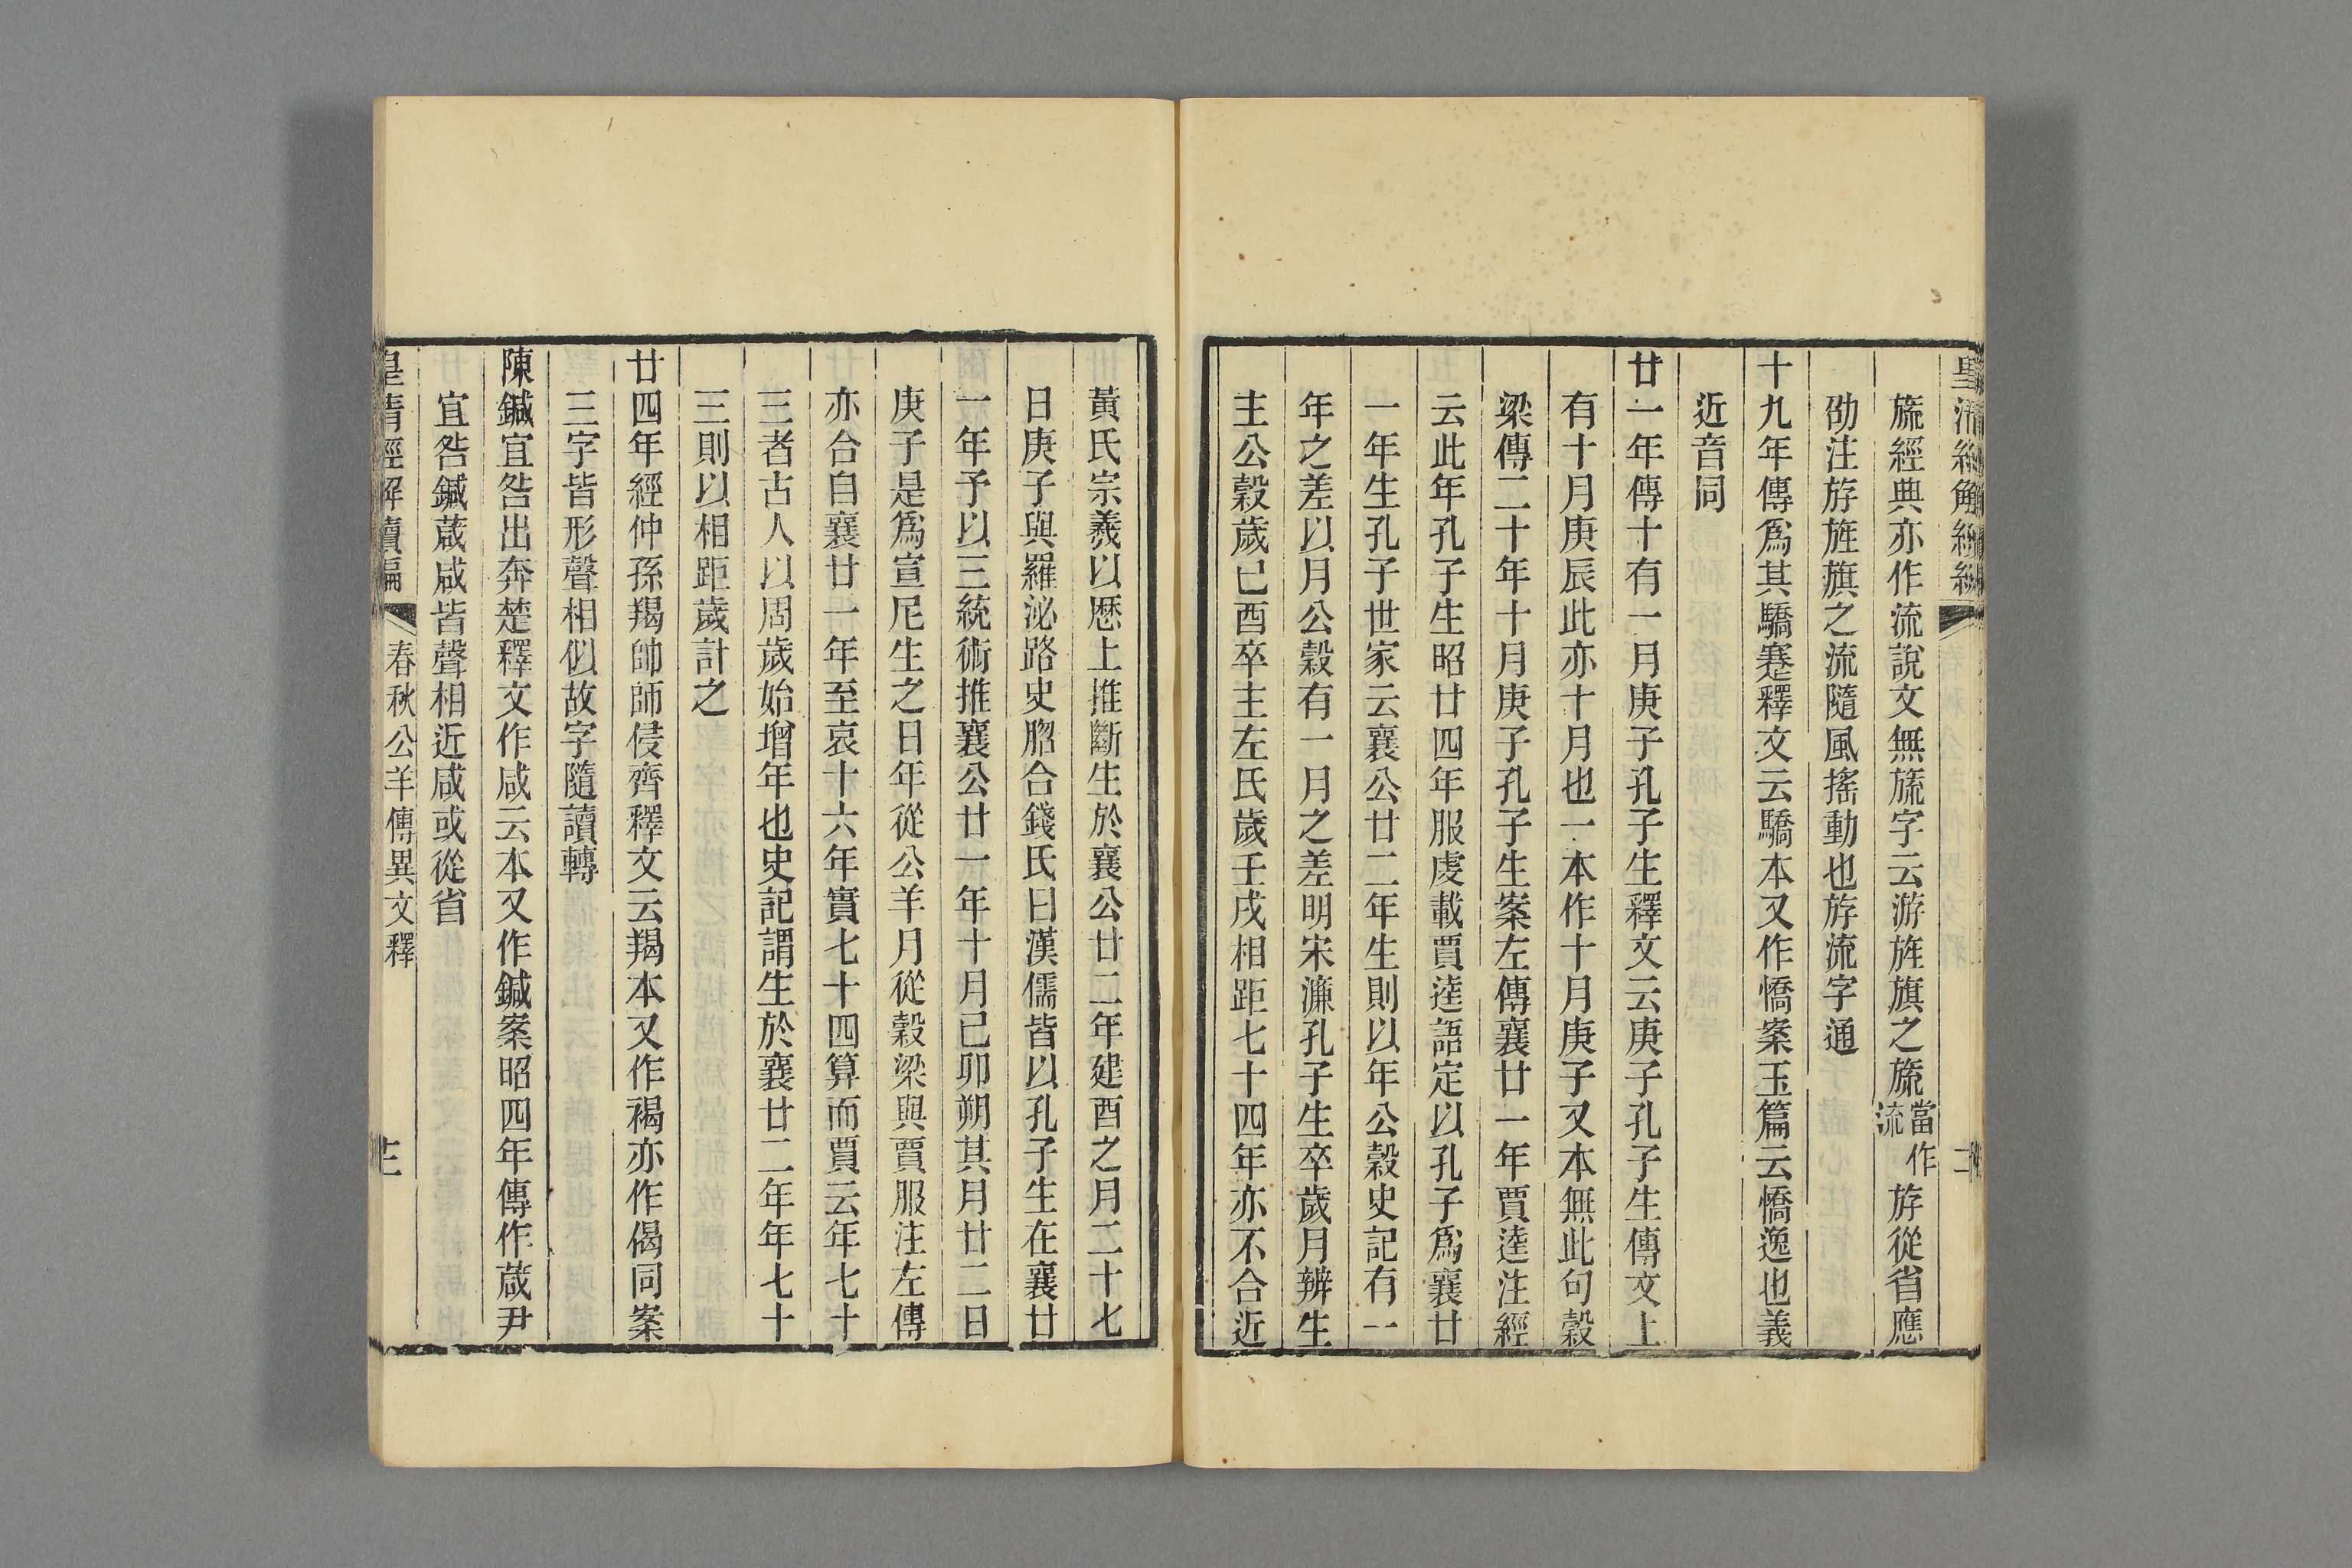 旒經典亦作流說文無旒字云游旌旗之旒當作流斿從省應
劭注斿旌旗之流隨風搖動也斿流字通
十九年傳爲其驕蹇釋文云驕本又作憍案玉篇云憍逸也義
近音同
廿一年傳十有一月庚子孔子生釋文云庚子孔子生傳文上
有十月庚辰此亦十月也一本作十月庚子又本無此句穀
梁傳二十年十月庚子孔子生案左傳襄廿一年賈逵注經
云此年孔子生昭廿四年服虔載賈逵語定以孔子爲襄廿
一年生孔子世家云襄公廿二年生則以年公穀史記有一
年之差以月公穀有一月之差明宋濂孔子生卒歲月辨生
主公穀歲已酉卒主左氏歲壬戌相距七十四年亦不合近
黃氏宗羲以厯上推斷生於襄公廿二年建酉之月二十七
日庚子與羅泌路史脗合錢氏曰漢儒皆以孔子生在襄廿
一年予以三統術推襄公廿一年十月己卯朔其月廿二日
庚子是爲宣尼生之日年從公羊月從穀梁與賈服注左傳
亦合自襄廿一年至哀十六年實七十四算而賈云年七十
三者古人以周歲始增年也史記謂生於襄廿二年年七十
三則以相距歲計之
廿四年經仲孫羯帥師侵齊釋文云羯本又作褐亦作偈同案
三字皆形聲相似故字隨讀轉
陳鍼宜咎出奔楚釋文作咸云本又作鍼案昭四年傳作葴尹
宜咎鍼葴咸皆聲相近咸或從省
皇清經解續編
春秋公羊傳異文釋